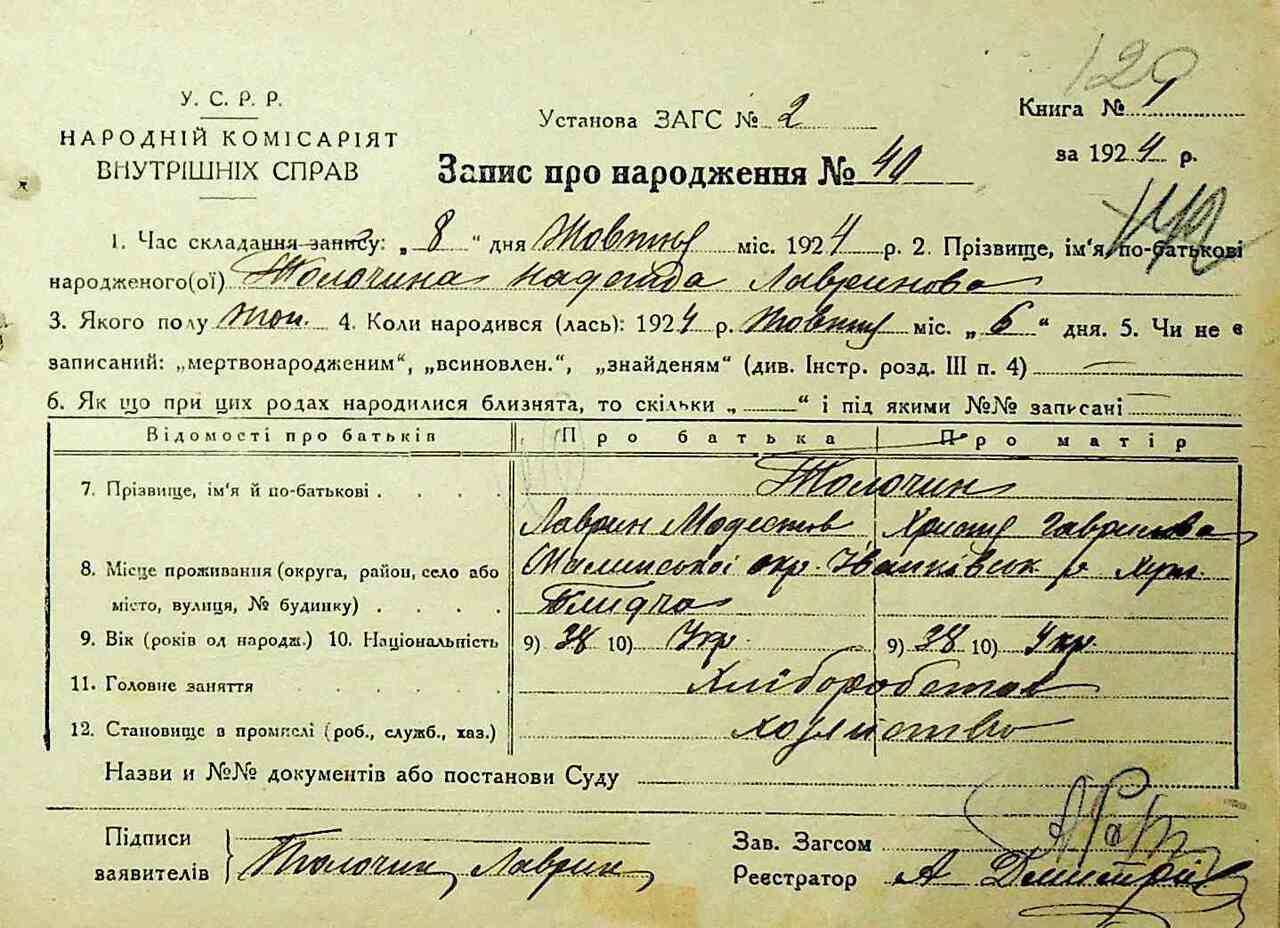 129
У. С. Р. Р.
НАРОДНІЙ КОМІСАРІЯТ
ВНУТРІШНІХ СПРАВ
Установа ЗАГС № 2
Книга № 1
за 1924 р.
Запис про народження № 40
1. Час складання запису: „ 8 “ дня Жовтня міс. 1924 р. 2. Прізвище, ім'я по-батькові
народженого(ої) Толочина Надежда Лавринова
3. Якого полу жін. 4. Коли народився (лась): 1924 р. Жовтня міс. „ 6 “ дня. 5. Чи не є
записаний: „мертвонародженим“, „всиновлен.“, „знайденям“ (див. Інстр. розд. III п. 4)
6. Як що при цих родах народилися близнята, то скільки „ “ і під якими №№ записані
Відомості про батьків Про батька Про матір
7. Прізвище, ім'я й по-батькові Толочин
Лаврин Модестов Христя Гаврилова
8. Місце проживання (округа, район, село або
місто, вулиця, № будинку) Малинської окр. Іванківськ р
9. Вік (років од народж.) 10. Національність 9) 38 10) Укр. 9) 38 10) Укр.
11. Головне заняття Хліборобство
12. Становище в промислі (роб., служб., хаз.) хозяйство
Назви и №№ документів або постанови Суду
Підписи
заявителів Толочин Лаврин
Зав. Загсом
Реєстратор А